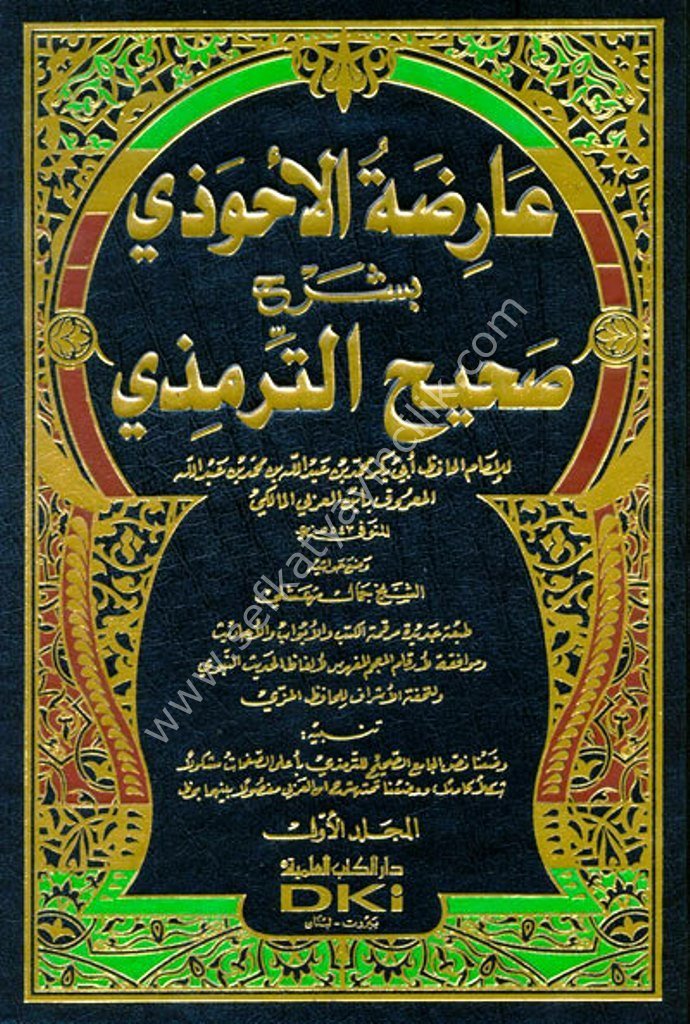 عَارِضَةُ الأحْوَذي
بشَرْح
صَحيح الترمِّذي
للإمَام الحافظ أبي بكر محمّد بن عبد اللّه بن محمّد بن عبد اللّه
المعروف بابن العربي المالكي
المتوفى ٥٤٣ هـ
وضع حواشيه
الشيخ جمال مرعشلي
طبعة جديدة مرقمة الكتب والأبواب والأحاديث
وموافقة لأرقام المعجم المفهرس لألفاظ الحديث النبوي
ولتحفة الأشراف للحافظ المزي
تنبيه:
وضعنا نص الجامع الصحيح للترمذي بأعلى الصفحات مشكولاً
شكلاً كاملاً ووضعنا تحته شرح ابن العربي مفصولاً بينهما بخط
المجلد الأول
دار الكتب العلمية
DKi
بيروت - لبنان
www.sefkatyayincilik.com